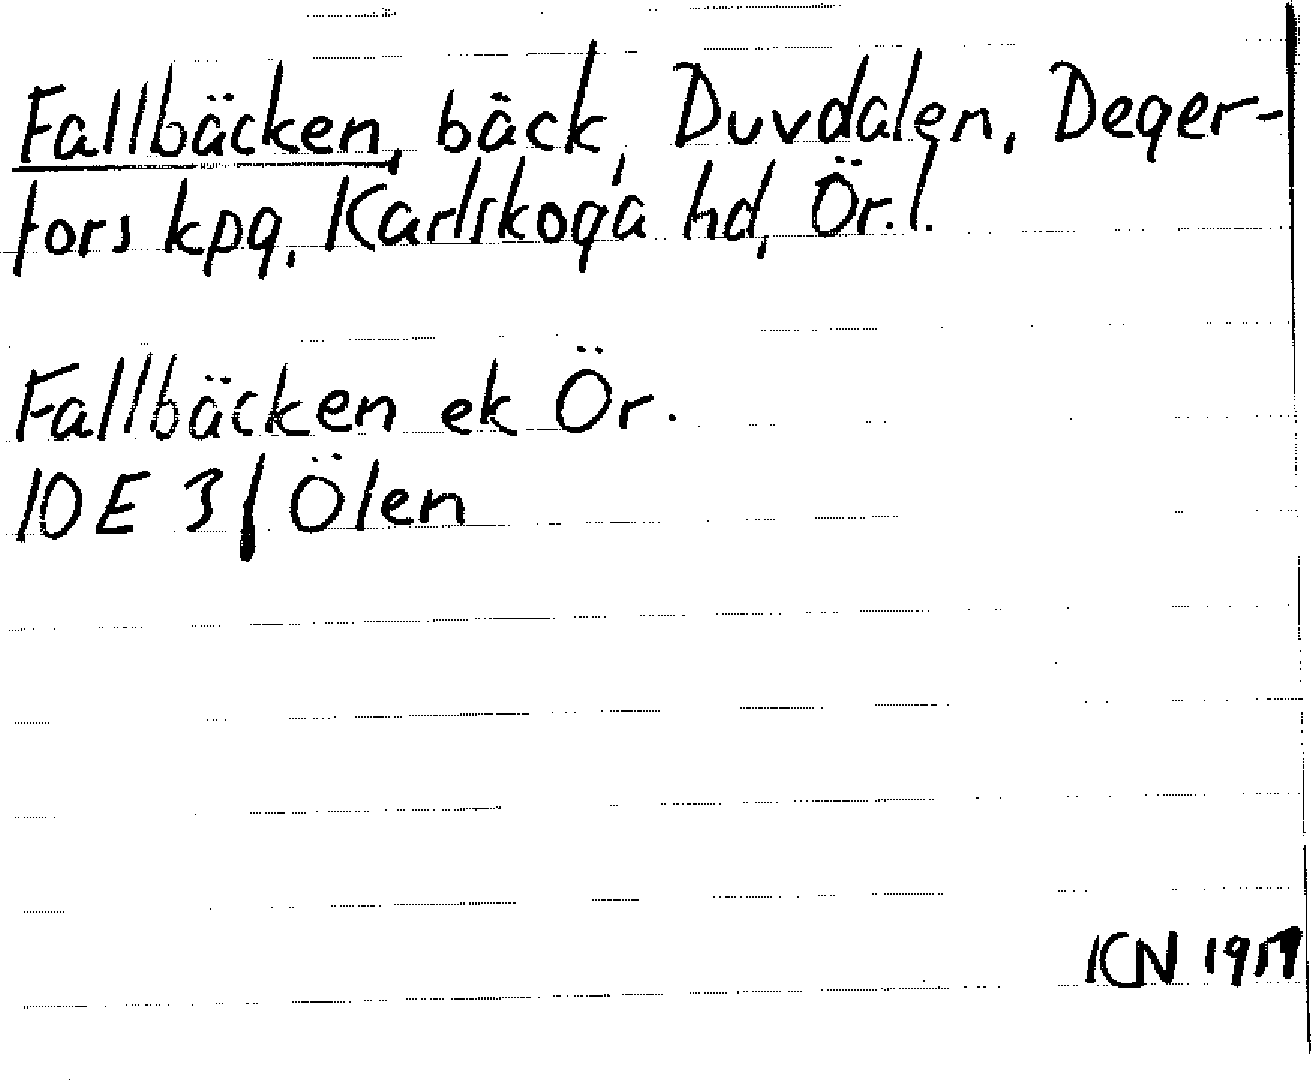 Fallbäcken, bäck, Duvdalen, Deger-
fors kpg, Karlskoga hd, Ör.l.
Fallbäcken ek Ör.
10E 3f Ölen
KN